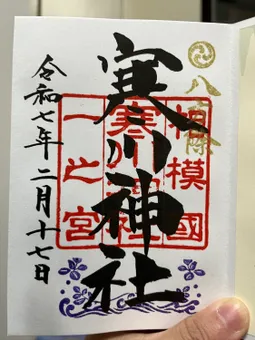 八方除
寒川神社
相模國
寒川神社
一之宮
令和七年二月十七日